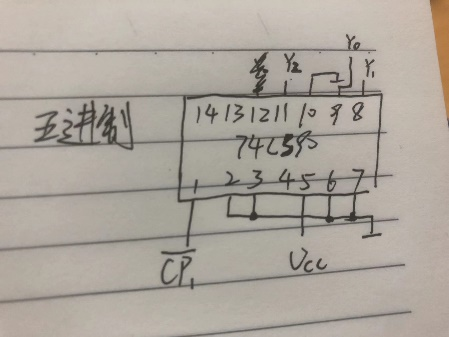 Y₂ Y₀ Y₁
五进制
14 13 12 11 10 9 8
74LS90
1 2 3 4 5 6 7
C̅P̅₁ Vcc